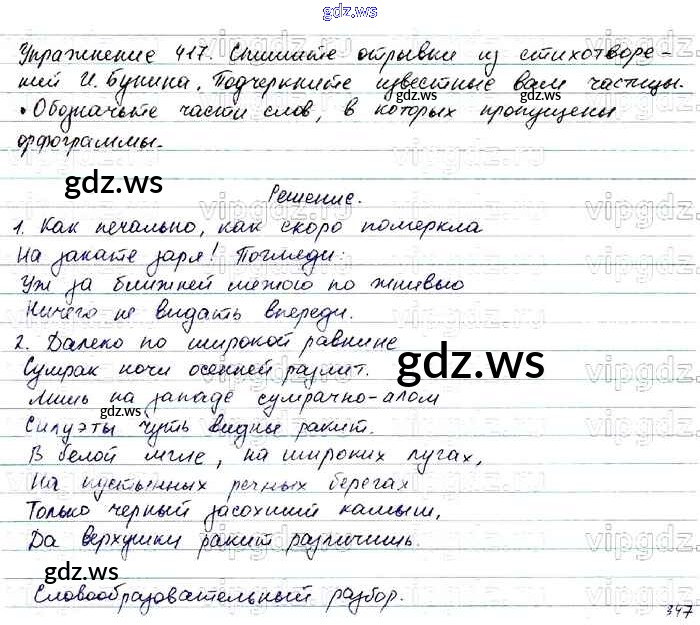 gdz.ws
Упражнение 417. Спишите отрывки из стихотворе-
ний И. Бунина. Подчеркните известные вам частицы.
gdz.ws
• Обозначьте части слов, в которых пропущены
орфограммы.
gdz.ws
Решение.
1. Как печально, как скоро померкла
На закате заря! Погляди:
Уж за ближней межою по жнивью
Ничего не видать впереди.
2. Далеко по широкой равнине
Сумрак ночи осенней разлит.
gdz.ws
Лишь на западе сумрачно-алом
gdz.ws
Силуэты чуть видны ракит.
В белой мгле, на широких лугах,
На пустынных речных берегах
Только черный засохший камыш,
Да верхушки ракит различишь.
gdz.ws
gdz.ws
Словообразовательный разбор.
347
vipgdz.ru